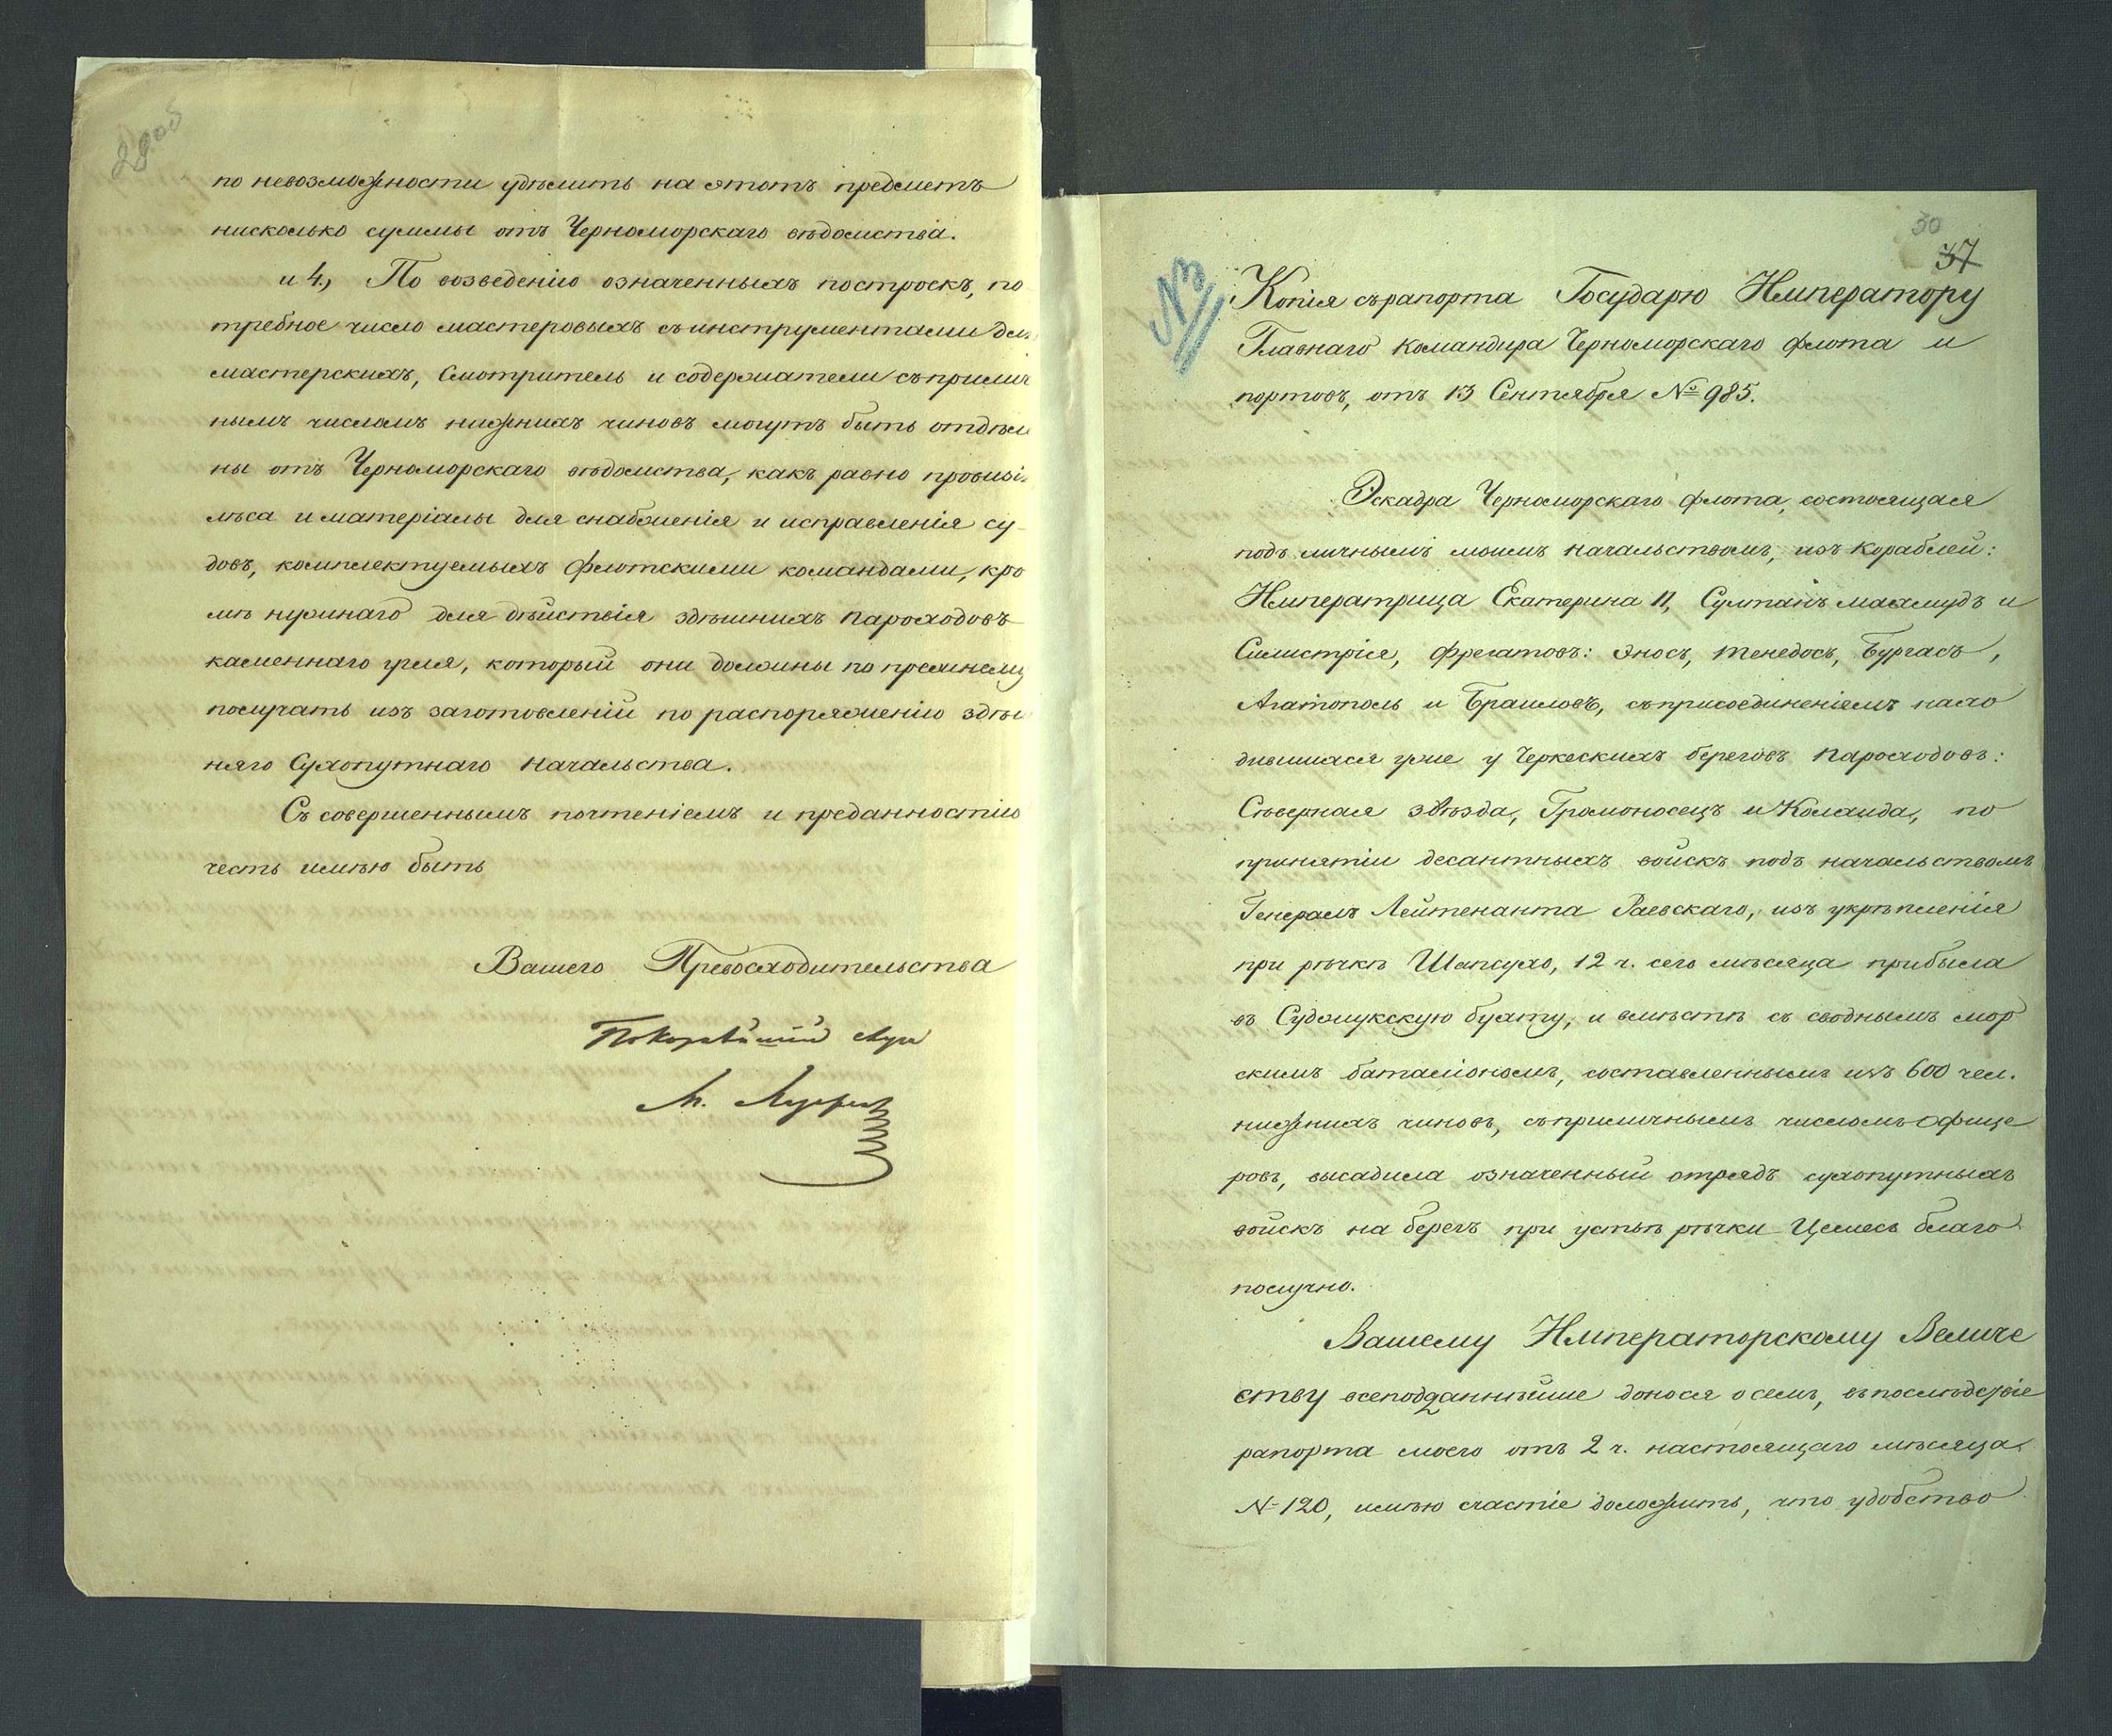 29об
по невозможности удѣлить на этотъ предметъ
нисколько суммы отъ Черноморскаго вѣдомства.
и 4, По возведенію означенныхъ построекъ, по
требное число мастеровыхъ съ инструментами для
мастерскихъ, Смотритель и содержатели съ прилич
нымъ числомъ нижнихъ чиновъ могутъ быть отдѣле
ны отъ Черноморскаго вѣдомства, какъ равно провизі
лѣса и матеріалы для снабженія и исправленія су-
довъ, комплектуемыхъ флотскими командами, кро
мѣ нужнаго для дѣйствія здѣшнихъ пароходовъ
каменнаго угля, который они должны по прежнему
получать изъ заготовленій по распоряженію здѣш
няго Сухопутнаго начальства.
Съ совершеннымъ почтеніемъ и преданностію
честь имѣю быть
Вашего Превосходительства
Покорнѣйшій слуга
М. Лазаревъ
30
37
№3
Копія съ рапорта Государю Императору
Главнаго Командира Черноморскаго флота и
портовъ, отъ 13 Сентября № 985.
Эскадра Черноморскаго флота, состоящая
подъ личнымъ моимъ начальствомъ, изъ кораблей:
Императрица Екатерина II, Султанъ Махмудъ и
Силистрія, фрегатовъ: Эносъ, Тенедосъ, Бургасъ,
Агатополь и Браиловъ, съ присоединеніемъ нахо
дившихся уже у Черкескихъ береговъ пароходовъ:
Сѣверная звѣзда, Громоносецъ и Колхида, по
принятіи десантныхъ войскъ подъ начальствомъ
Генералъ Лейтенанта Раевскаго, изъ укрѣпленія
при рѣчкѣ Шапсухо, 12 ч. сего мѣсяца прибыла
въ Суджукскую бухту, и вмѣстѣ съ своднымъ мор
скимъ баталіономъ, составленнымъ изъ 600 чел.
нижнихъ чиновъ, съ приличнымъ числомъ Офице
ровъ, высадила означенный отрядъ сухопутныхъ
войскъ на берегъ при устьѣ рѣчки Цемесъ благо
получно.
Вашему Императорскому Величе
ству всеподданнѣйше донося о семъ, въ послѣдствіе
рапорта моего отъ 2 ч. настоящаго мѣсяца
№ 120, имѣю счастіе доложить, что удобство